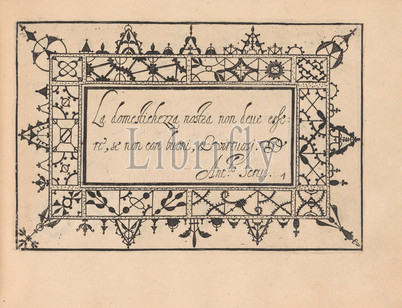 La domestichezza nostra non deue esse-
re, se non con buoni, et virtuosi.
Ant.º
Librifly